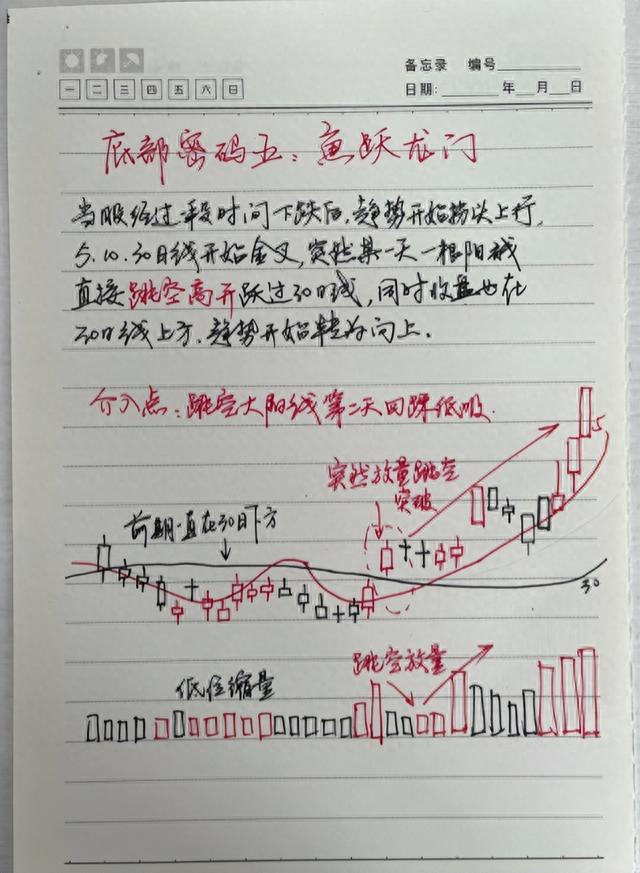 备忘录 编号
一 二 三 四 五 六 日
日期: 年 月 日
底部密码五：鱼跃龙门
当股经过一段时间下跌后，趋势开始拐头上行，
5.10.30日线开始金叉，突然某一天一根阳线
直接跳空高开跃过30日线，同时收盘也在
30日线上方、趋势开始转为向上。
介入点：跳空大阳线第二天回踩低吸.
突然放量跳空
突破
5
前期一直在30日下方
30
跳空放量
低位缩量